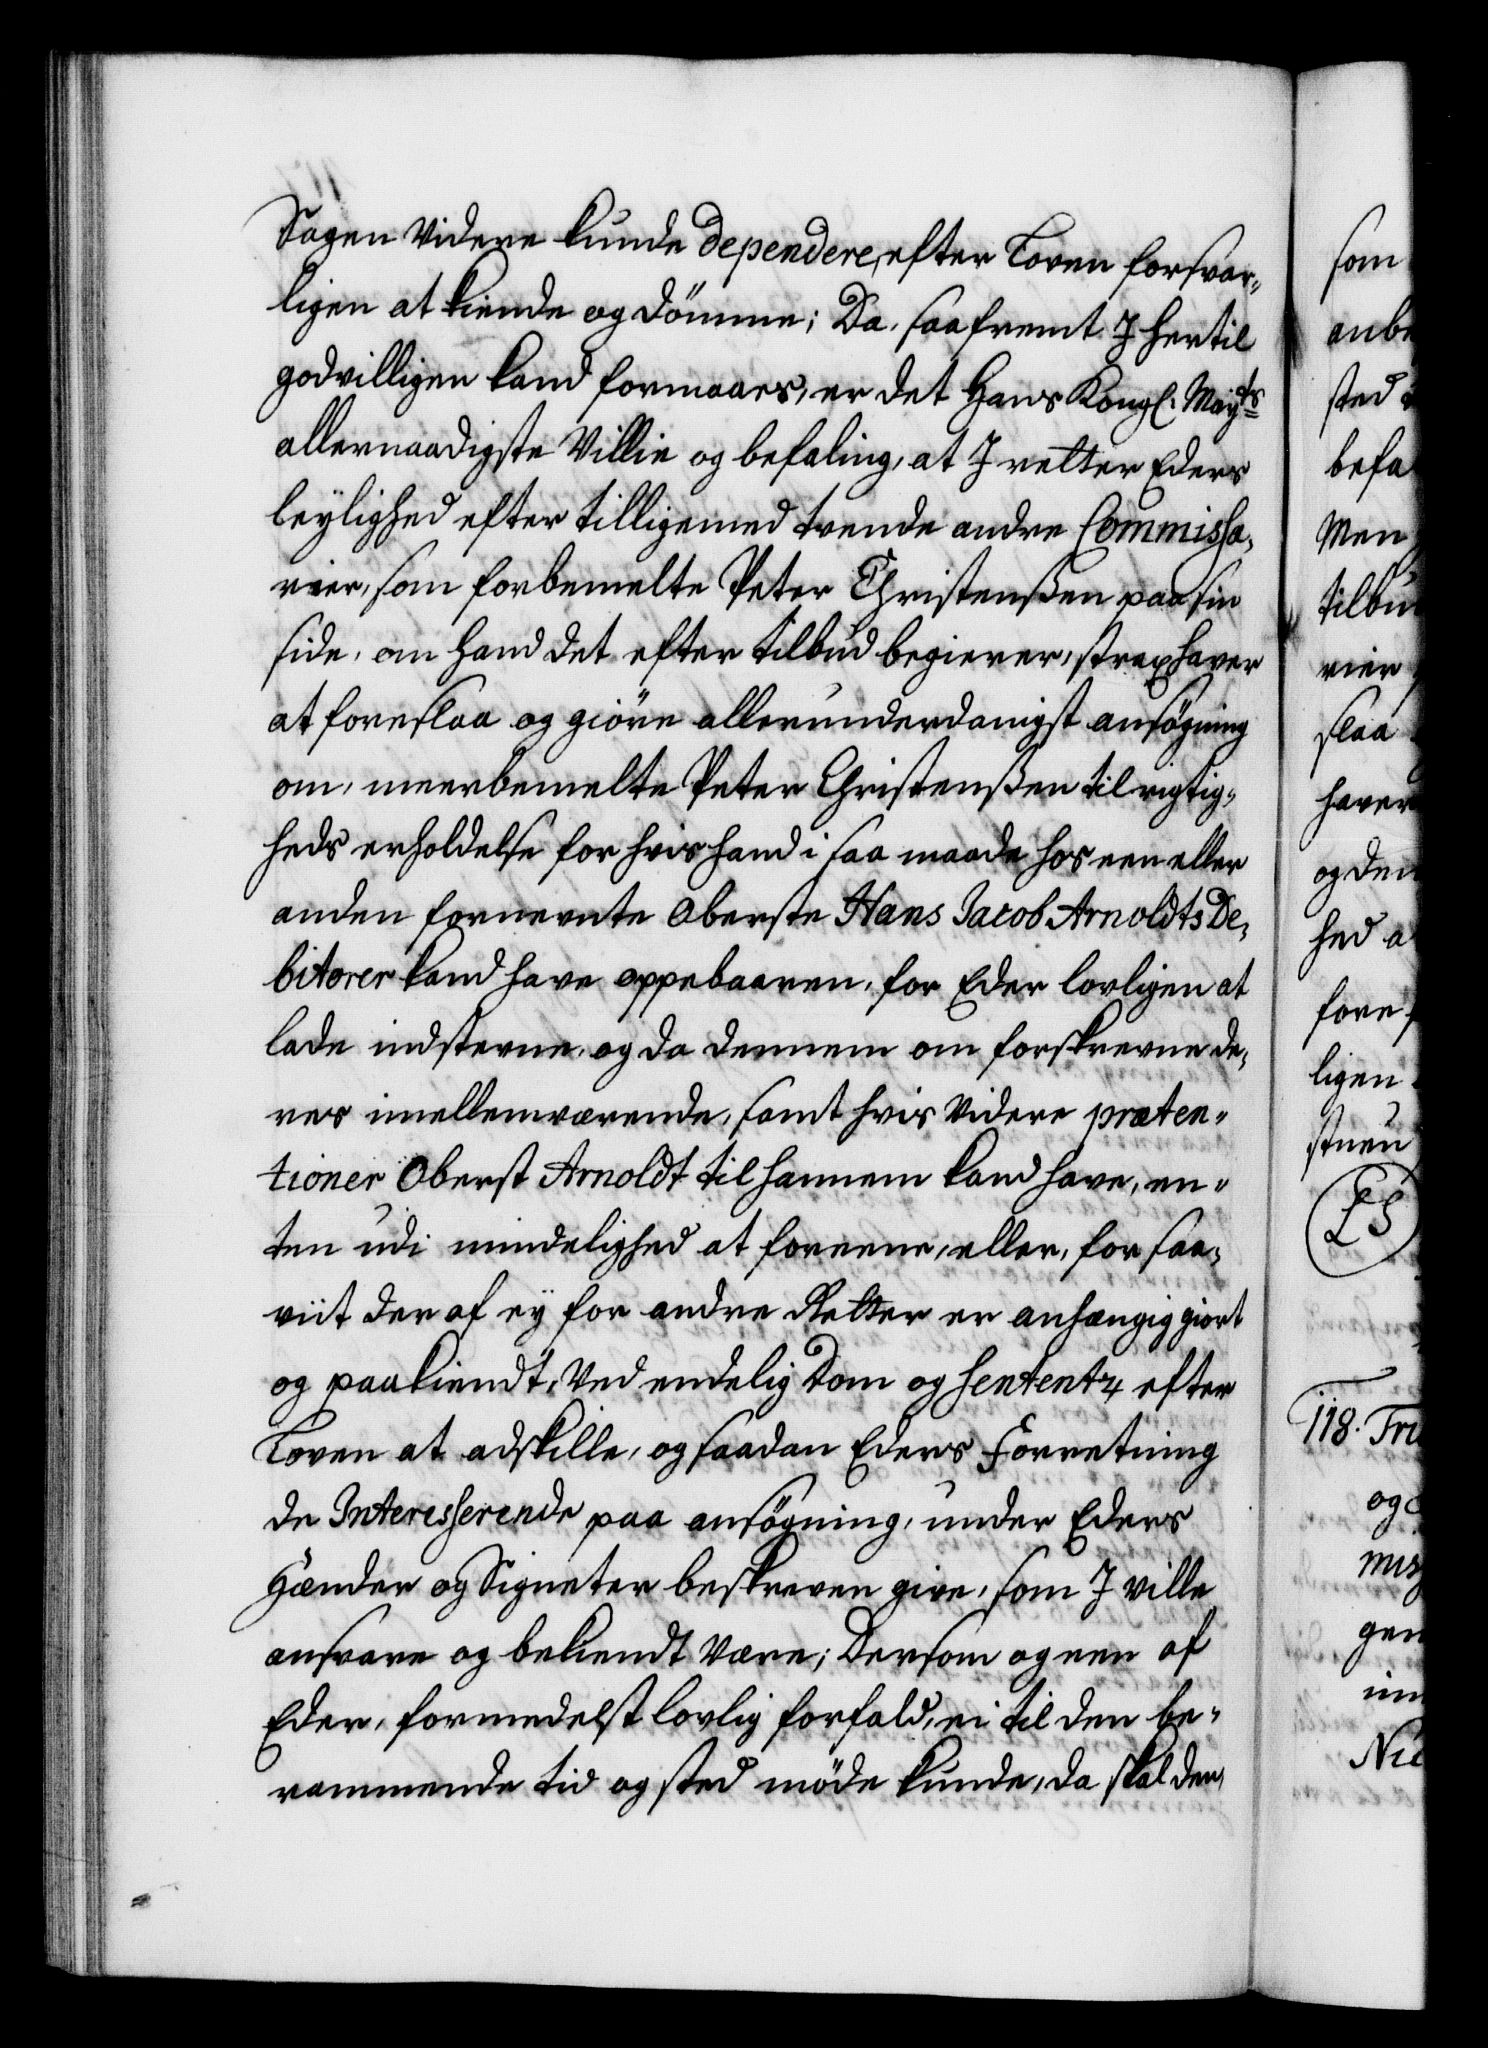 Sagen Videre kunde dependere, efter Loven forsvar¬
ligen at kiende og dömme; Da, saafremt I hertil
godvilligen kand formaaes, er det Hans Kongl. May.ts
allernaadigste Villie og befaling, at I retter Eders
leylighed efter tilligemed tvende andre Commissa¬
rier, som forbemelte Peter Christenßen paa sin
side, om hand det efter tilbud begierer, strax haver
at foreslaa og giöre allerunderdanigst ansögning
om, meerbemelte Peter Christenßen til rigtig¬
heds erholdelse for hvis hand i saa maade hos een eller
anden fornevnte Oberste Hans Jacob Arnoldts De¬
bitorer kand have oppebaaren, for Eder lovligen at
lade indstevne, og da dennem om forskrevne de¬
res imellemværende, samt hvis Videre præten¬
tioner Oberst Arnoldt til hannem kand have, en¬
ten udi mindelighed at foreene, eller, for saa¬
viit der af ey for andre Retter er anhængig giort
og paakiendt, Ved endelig Dom og Sententz efter
Loven at adskille, og saadan Eders Forretning
de Interesserende paa ansögning, under Eders
Hænder og Signeter beskreven give, som I ville
ansvare og bekiendt være; Dersom og een af
Eder, formedelst lovlig forfald, ei til den be¬
rammende tid og sted möde kunde, da skal den,
som
anbe
sted
befa
Men
tilbu
rier
slaa
haver
og den
hed a
fore
ligen
stuen
LS
118. Fri
og
miss
gen
im
Nie